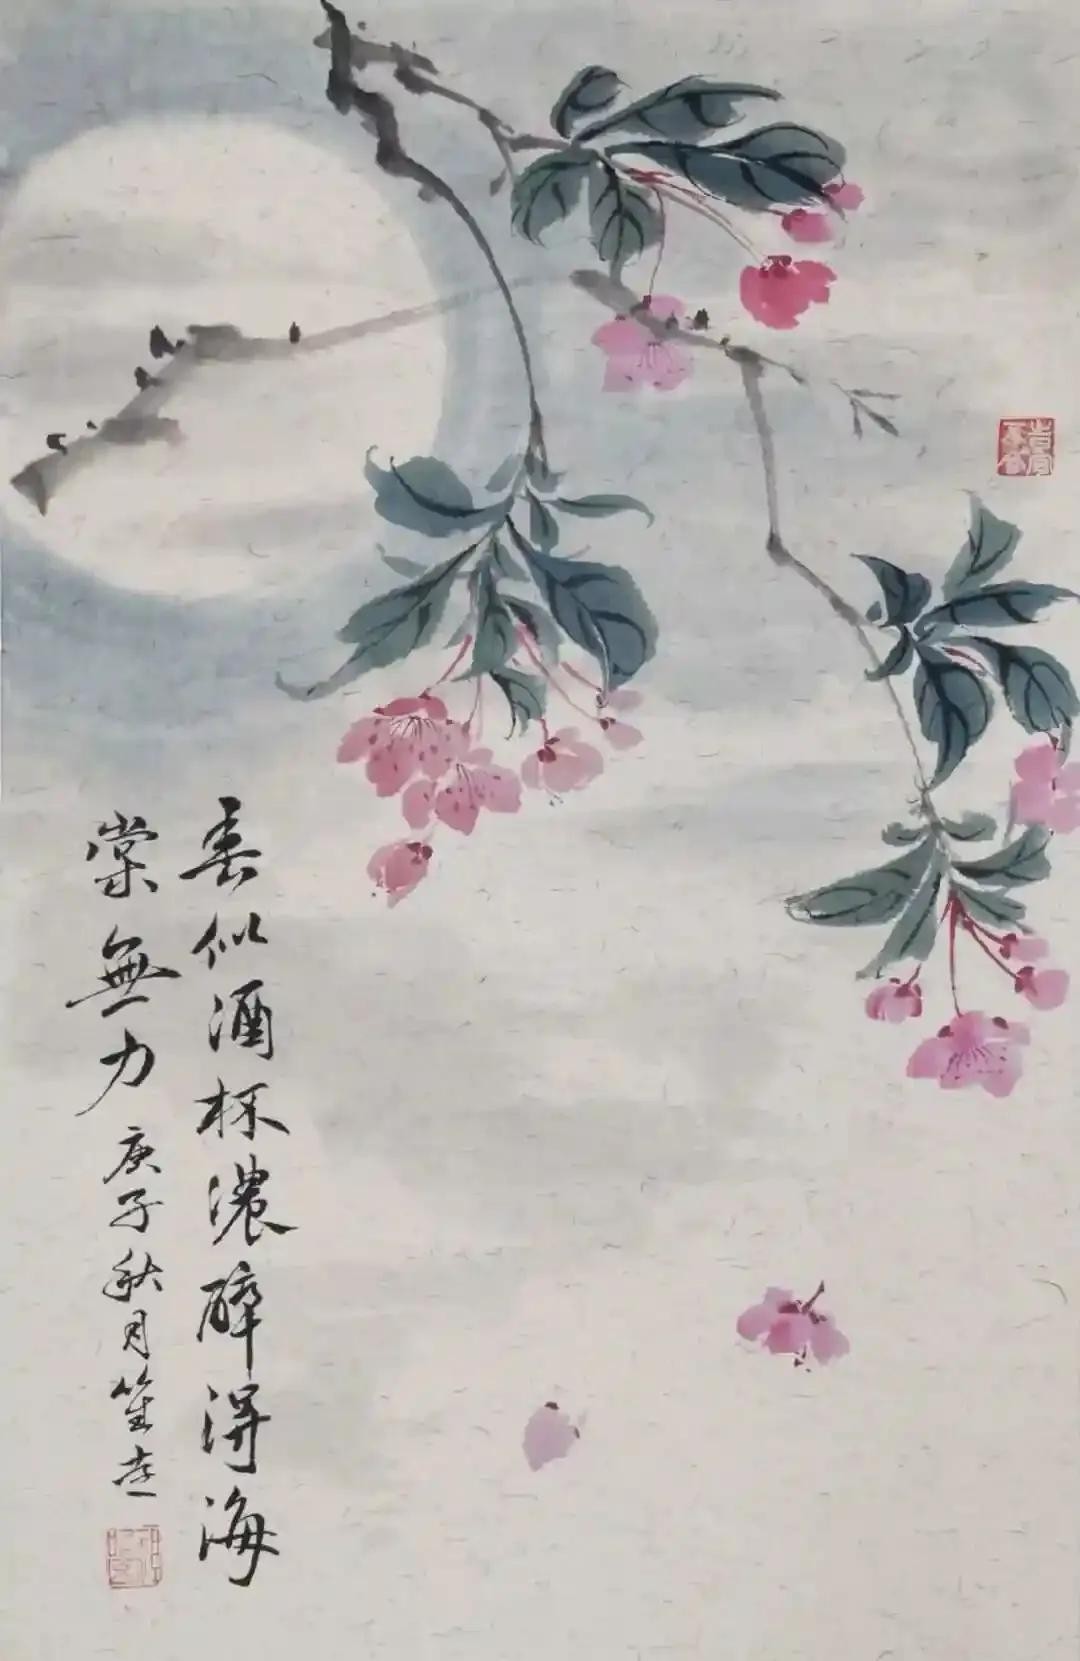 春似酒杯濃醉得海
棠無力庚子秋月笙志